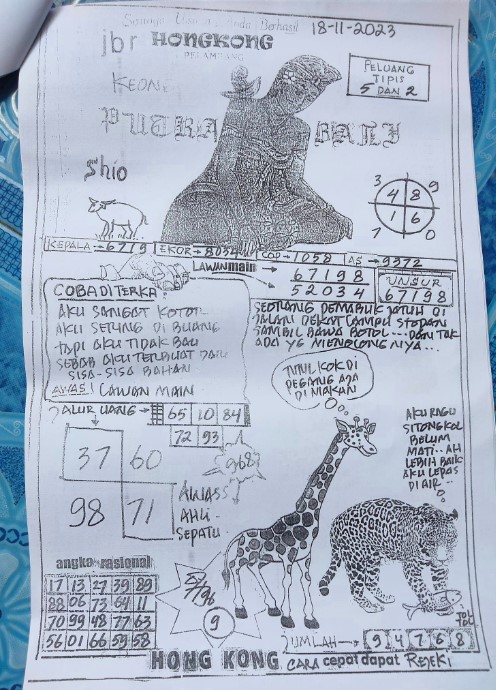 18-11-2023
jbr HONGKONG
PELUANG
TIPIS
5 DAN 2
KEONG
PUTRA BALI
Shio
3 9
4 8
1 6
7 0
KEPALA → 6719 EKOR → 8034 COP → 1058 AS → 9372
LAWAN main → 67198
52034
UNSUR
67198
COBA DITERKA
AKU SANGAT KOTOR
AKU SERING DI BUANG
TAPI AKU TIDAK BAU
SEBAB AKU TERBUAT DARI
SISA-SISA BAHAN
AWAS! LAWAN MAIN
SEORANG PEMABUK JATUH DI
JALAN DEKAT LAMPU STOPAN
SAMBIL BAWA BOTOL... DAN TAK
ADA YG MENOLONG NYA...
JALUR UANG → 65 10 84
72 93
KOK DI
PEGANG AJA
DI MAKAN
AKU RAGU
SITONGKOL
BELUM
MATI.. AH
LEBIH BAIK
AKU LEPAS
DI AIR..
37 60
98 71
968
AWASS
AHLI
SEPATU
angka rasional
17 13 27 39 89
88 06 73 64 11
70 99 48 77 63
56 01 66 59 58
9
JUMLAH → 9 4 7 6 8
HONG KONG CARA cepat dapat REJEKI